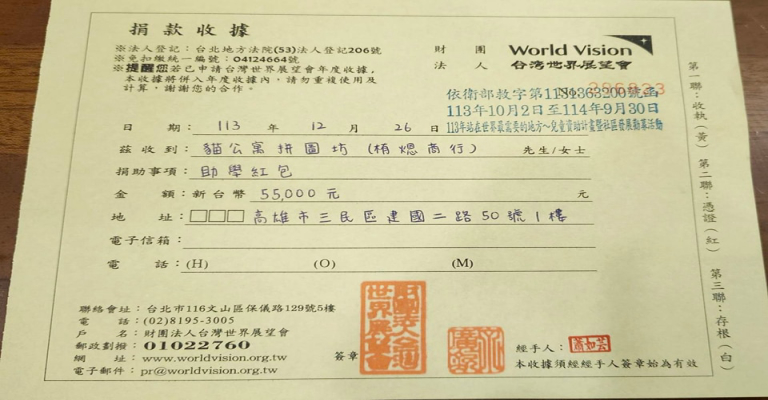 捐款收據
※法人登記：台北地方法院(53)法人登記206號
※免扣繳統一編號：04124664號
※提醒您若已申請台灣世界展望會年度收據，
本收據將併入年度收據內，請勿重複使用及
計算，謝謝您的合作。
財團法人
World Vision
台灣世界展望會
依衛部救字第1131363200號函
113年10月2日至114年9月30日
113年站在世界最需要的地方～兒童資助計畫暨社區發展勸募活動
日 期：113 年 12 月 26 日
茲收到：貓公寓拼圖坊 (楠熜商行) 先生/女士
捐助事項：助學紅包
金 額：新台幣 55,000元 元
地 址：□□□ 高雄市三民區建國二路50號1樓
電子信箱：
電 話：(H) (O) (M)
聯絡會址：台北市116文山區保儀路129號5樓
電 話：(02)8195-3005
戶 名：財團法人台灣世界展望會
郵政劃撥：01022760
網 址：www.worldvision.org.tw
電子郵件：pr@worldvision.org.tw
簽章
經手人：
本收據須經經手人簽章始為有效
第一聯：收執(黃)
第二聯：憑證(紅)
第三聯：存根(白)